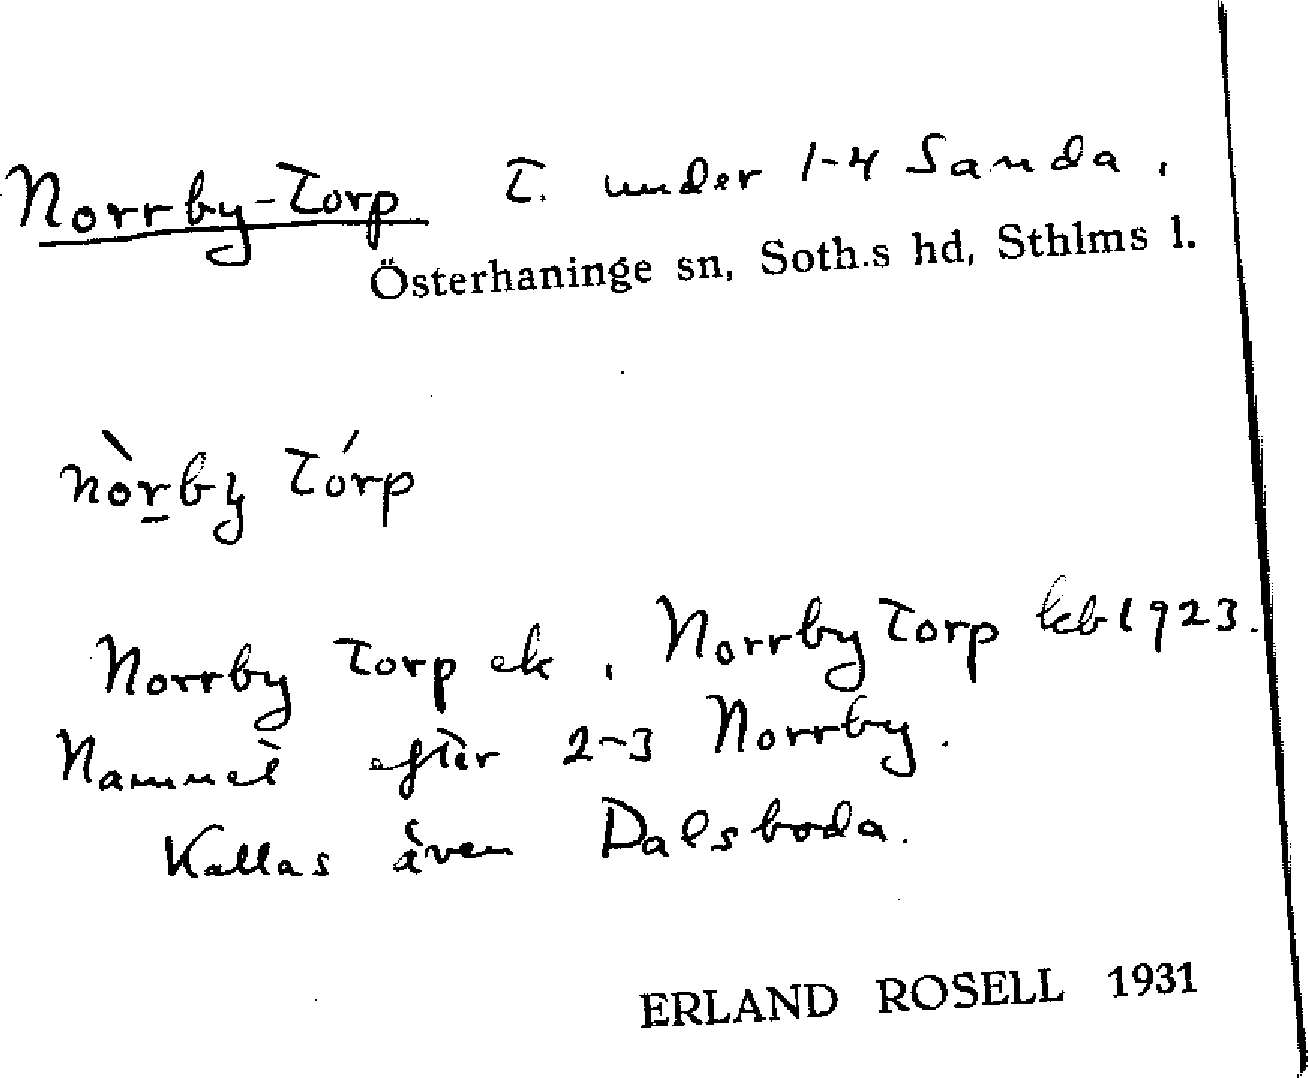 Norrby-Torp T. under 1-4 Sanda.
Österhaninge sn, Soth.s hd, Sthlms l.
nòrby tórp
Norrby Torp ek, Norrby Torp kb 1923.
Namnet efter 2-3 Norrby.
Kallas även Dalsboda.
ERLAND ROSELL 1931